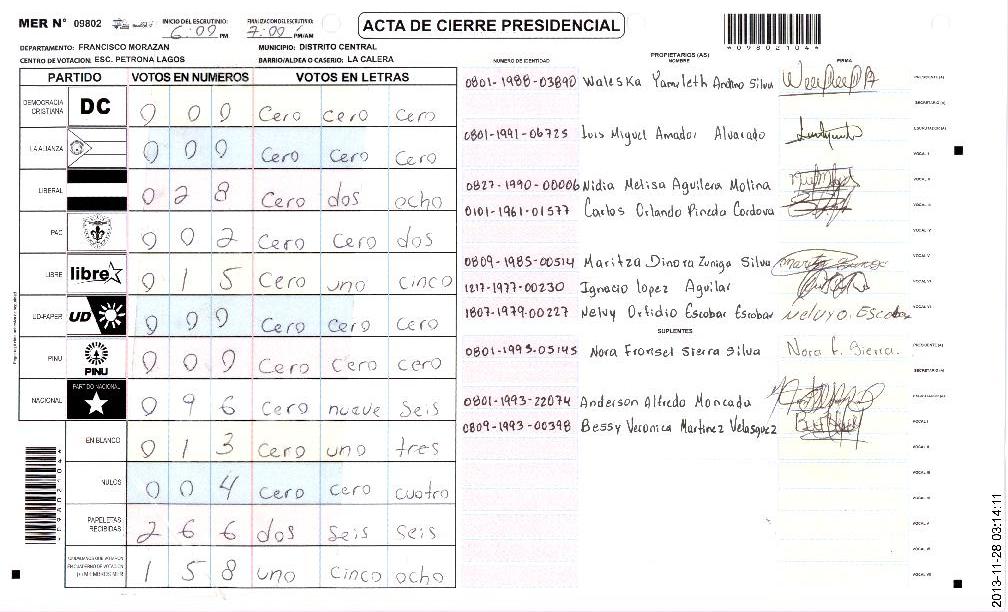 MER N° 09802 INICIO DEL ESCRUTINIO: 6:09 PM FINALIZACION DEL ESCRUTINIO: 7:00 PM/AM ACTA DE CIERRE PRESIDENCIAL *09802104*
DEPARTAMENTO: FRANCISCO MORAZAN MUNICIPIO: DISTRITO CENTRAL
CENTRO DE VOTACION: ESC. PETRONA LAGOS BARRIO/ALDEA O CASERIO: LA CALERA
PARTIDO VOTOS EN NUMEROS VOTOS EN LETRAS
DEMOCRACIA CRISTIANA DC 0 0 0 Cero cero cero
LA ALIANZA 0 0 0 Cero Cero Cero
LIBERAL 0 2 8 Cero dos ocho
PAC 0 0 2 Cero Cero dos
LIBRE libre 0 1 5 Cero uno cinco
UD-FAPER UD 0 0 0 Cero Cero Cero
PINU PINU 0 0 0 Cero Cero cero
NACIONAL PARTIDO NACIONAL 0 9 6 Cero nueve seis
EN BLANCO 0 1 3 Cero uno tres
NULOS 0 0 4 Cero Cero cuatro
PAPELETAS RECIBIDAS 2 6 6 dos seis seis
CIUDADANOS QUE VOTARON EN CUADERNO DE VOTACION (+) MIEMBROS MER 1 5 8 uno cinco ocho
PROPIETARIOS (AS)
NUMERO DE IDENTIDAD NOMBRE FIRMA
0801-1988-03890 Waleska Yamileth Andino Silva PRESIDENTE(A)
SECRETARIO(A)
0801-1991-06725 Luis Miguel Amador Alvarado ESCRUTADOR(A)
VOCAL I
0827-1990-00006 Nidia Melisa Aguilera Molina VOCAL II
0101-1961-01577 Carlos Orlando Pineda Cordova VOCAL III
VOCAL IV
0809-1985-00514 Maritza Dinora Zuniga Silva VOCAL V
1217-1977-00230 Ignacio lopez Aguilar VOCAL VI
1807-1979-00227 Nelvy Orfidio Escobar Escobar Nelvy O. Escobar VOCAL VII
SUPLENTES
0801-1993-05145 Nora Fransel Sierra Silva Nora f. Sierra. PRESIDENTE(A)
SECRETARIO(A)
0801-1993-22074 Anderson Alfredo Moncada
0809-1993-00398 Bessy Veronica Martinez Velasquez VOCAL I
VOCAL II
VOCAL III
VOCAL IV
VOCAL V
VOCAL VI
VOCAL VII
*09802104*
2013-11-28 03:14:11